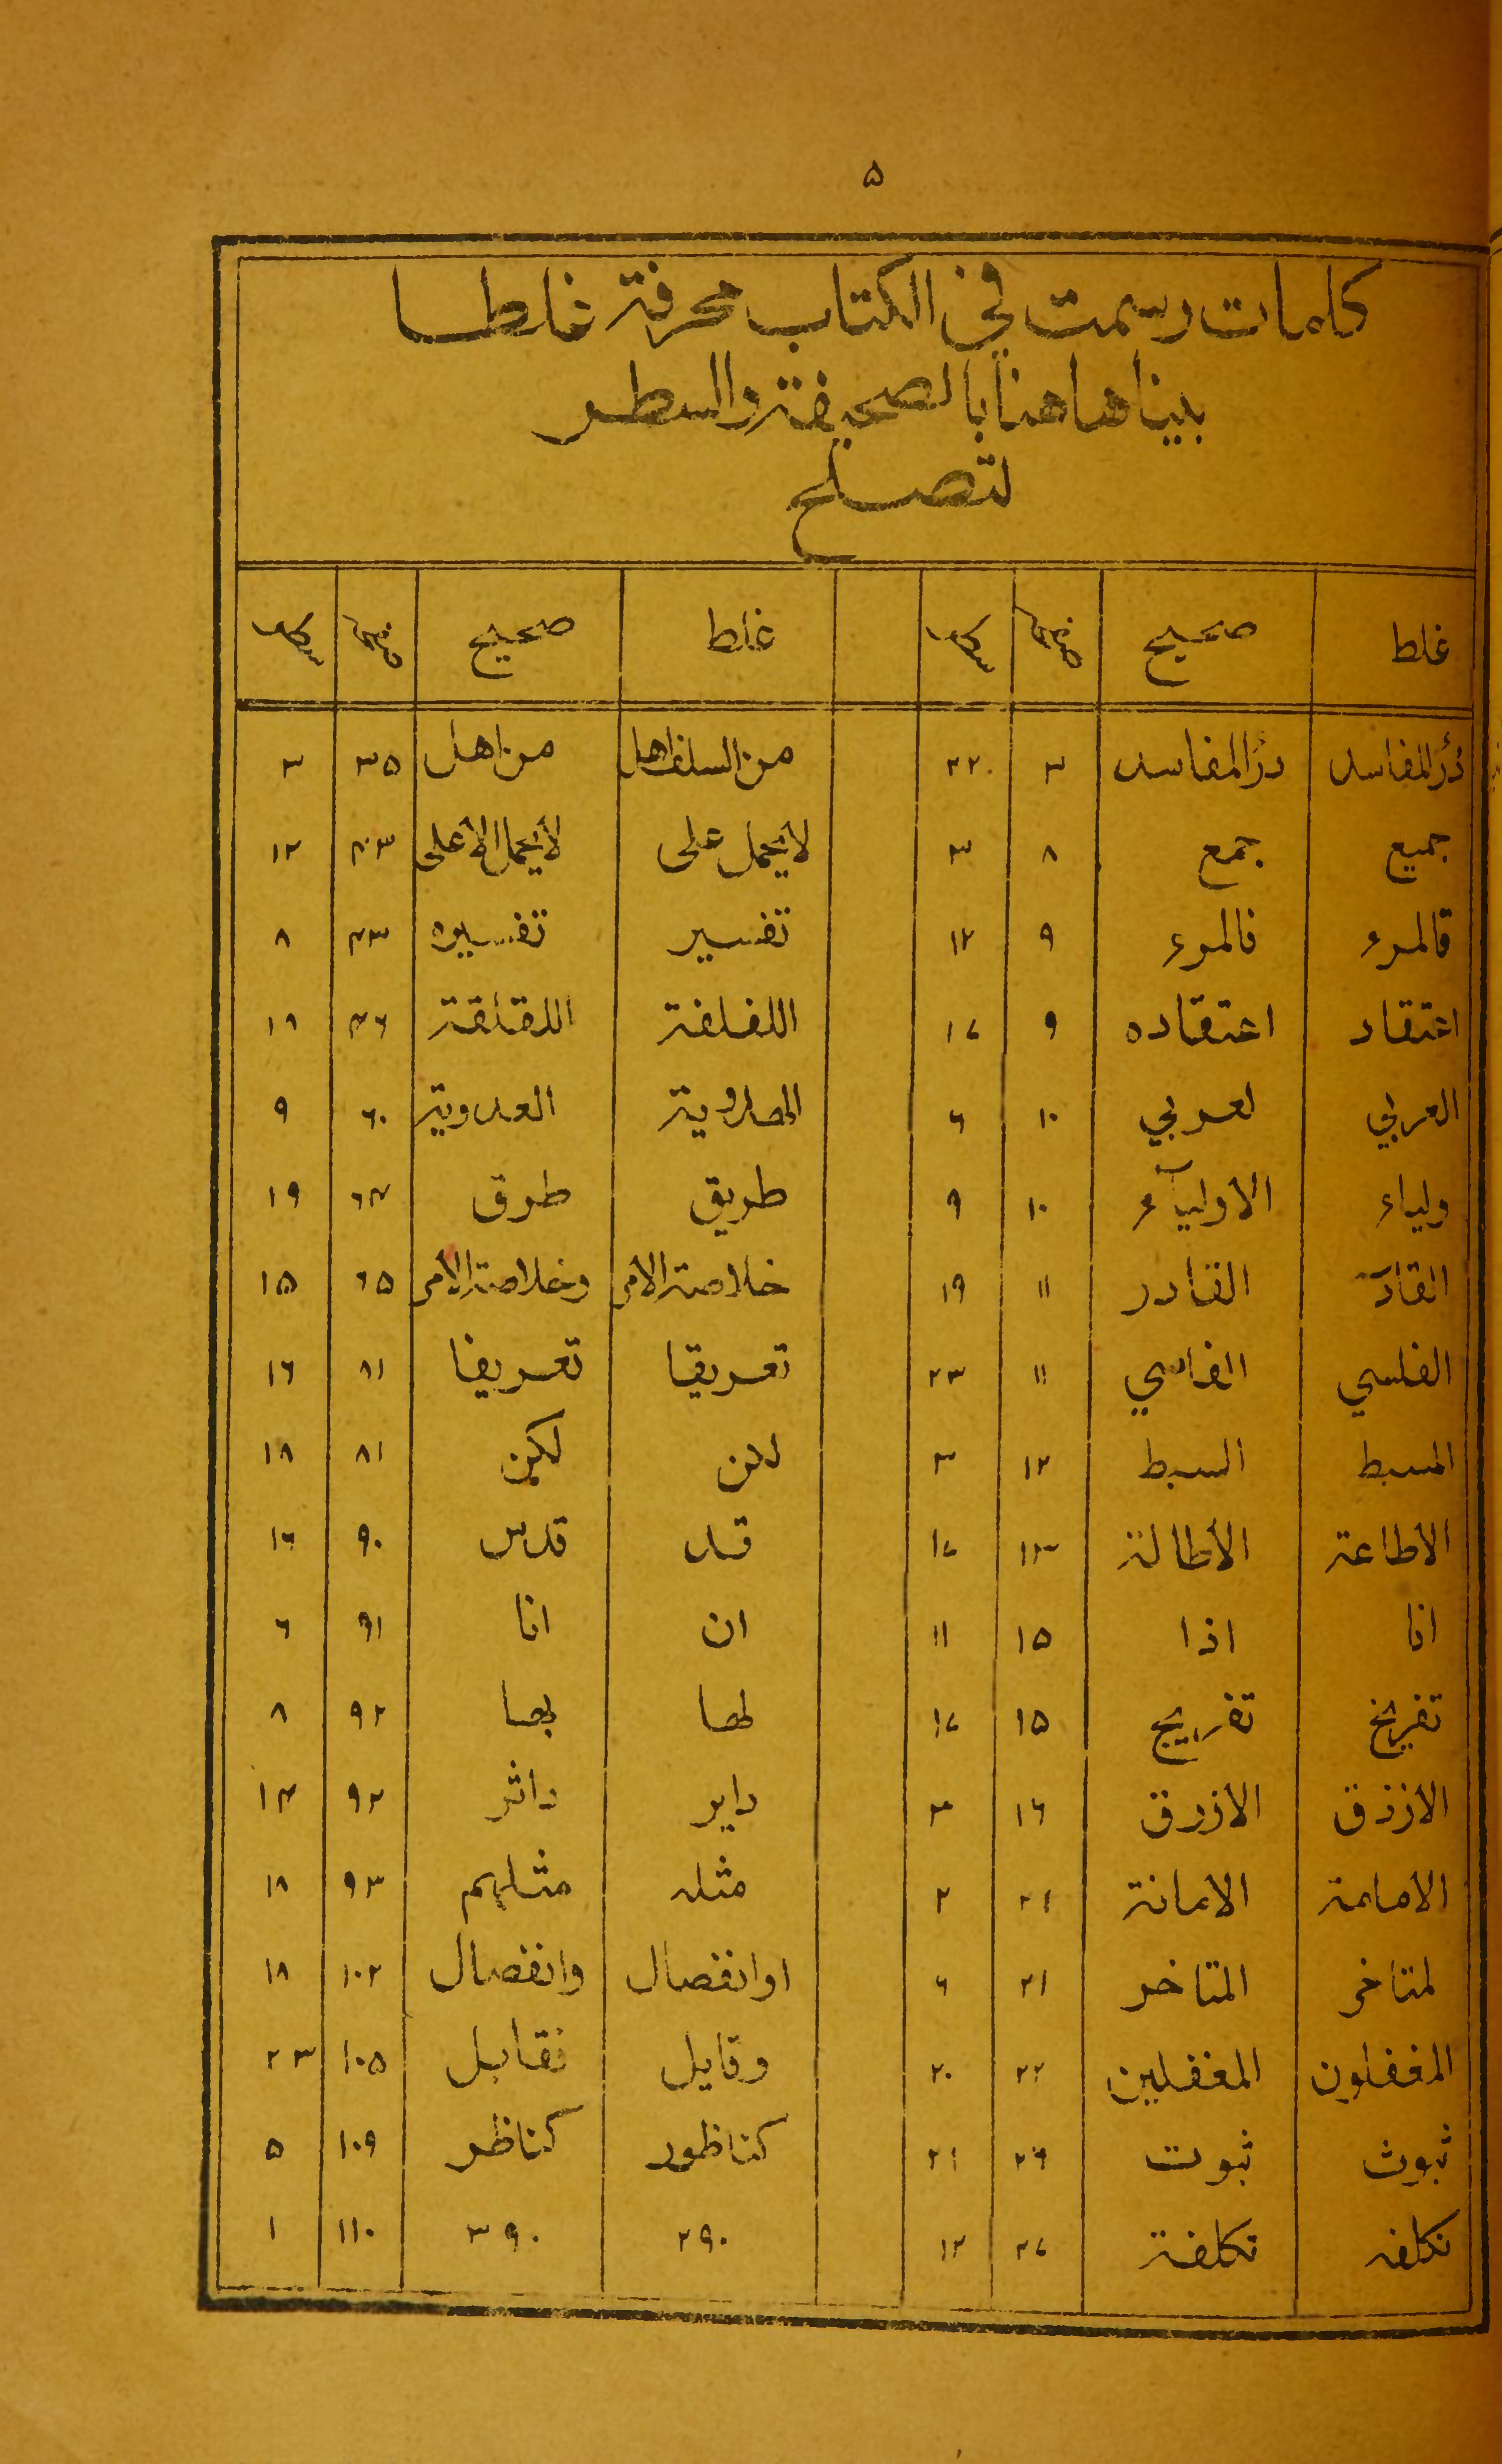 ۵
كلمات رسمت في الكتاب محرفة غلطا
بيناها هنا بالصحيفة والسطر
لتصلح
غلط صحيح صحيفة سطر غلط صحيح صحيفة سطر
درٔالمفاسد درٔالمفاسد ٣ ٢٢ من السلف اهل من اهل ٣۵ ٣
جميع جمع ٨ ٣ لا يحمل على لا يحمل الا على ١٢
قالمرء فالمرء ٩ ١٢ تفسير تفسيره ٨
اعتقاد اعتقاده ٩ ١٧ اللفلفة اللقلقة ١٨
العربي لعربي ١٠ ٦ العدوية ٦٠ ٩
ولياء الاوليآء ١٠ ٩ طريق طرق ٦٣ ١٩
القادّ القادر ١١ ١٩ خلاصة الامر وخلاصة الامر ٦۵ ١۵
الفلسي الفاسي ١١ ٢٣ تعريقا تعريفا ٨١ ١٦
المسبط السبط ١٢ ٣ لكن ٨١ ١٨
الاطاعة الاطالة ١٣ ١٧ قد قدس ٩٠ ١٦
انا اذا ١۵ ١١ ان انا ٩١ ٦
تفريخ تفريج ١۵ ١٧ لها بها ٩٢ ٨
الازذق الازرق ١٦ ٣ داير داثر ٩٢ ١٣
الامامة الامانة ٢١ ٢ مثله مثلهم ٩٣ ١٨
لمتاخر المتاخر ٢١ ٦ او انفصال وانفصال ١٠٢ ١٨
المغفلون المغفلين ٢٢ ٢٠ وقايل فقابل ١٠۵ ٢٣
ثبوث ثبوت ٢٦ ٢١ كناظور كناظر ١٠٩ ۵
تكلفه تكلفة ٢٧ ١٢ ٢٩٠ ٣٩٠ ١١٠ ١